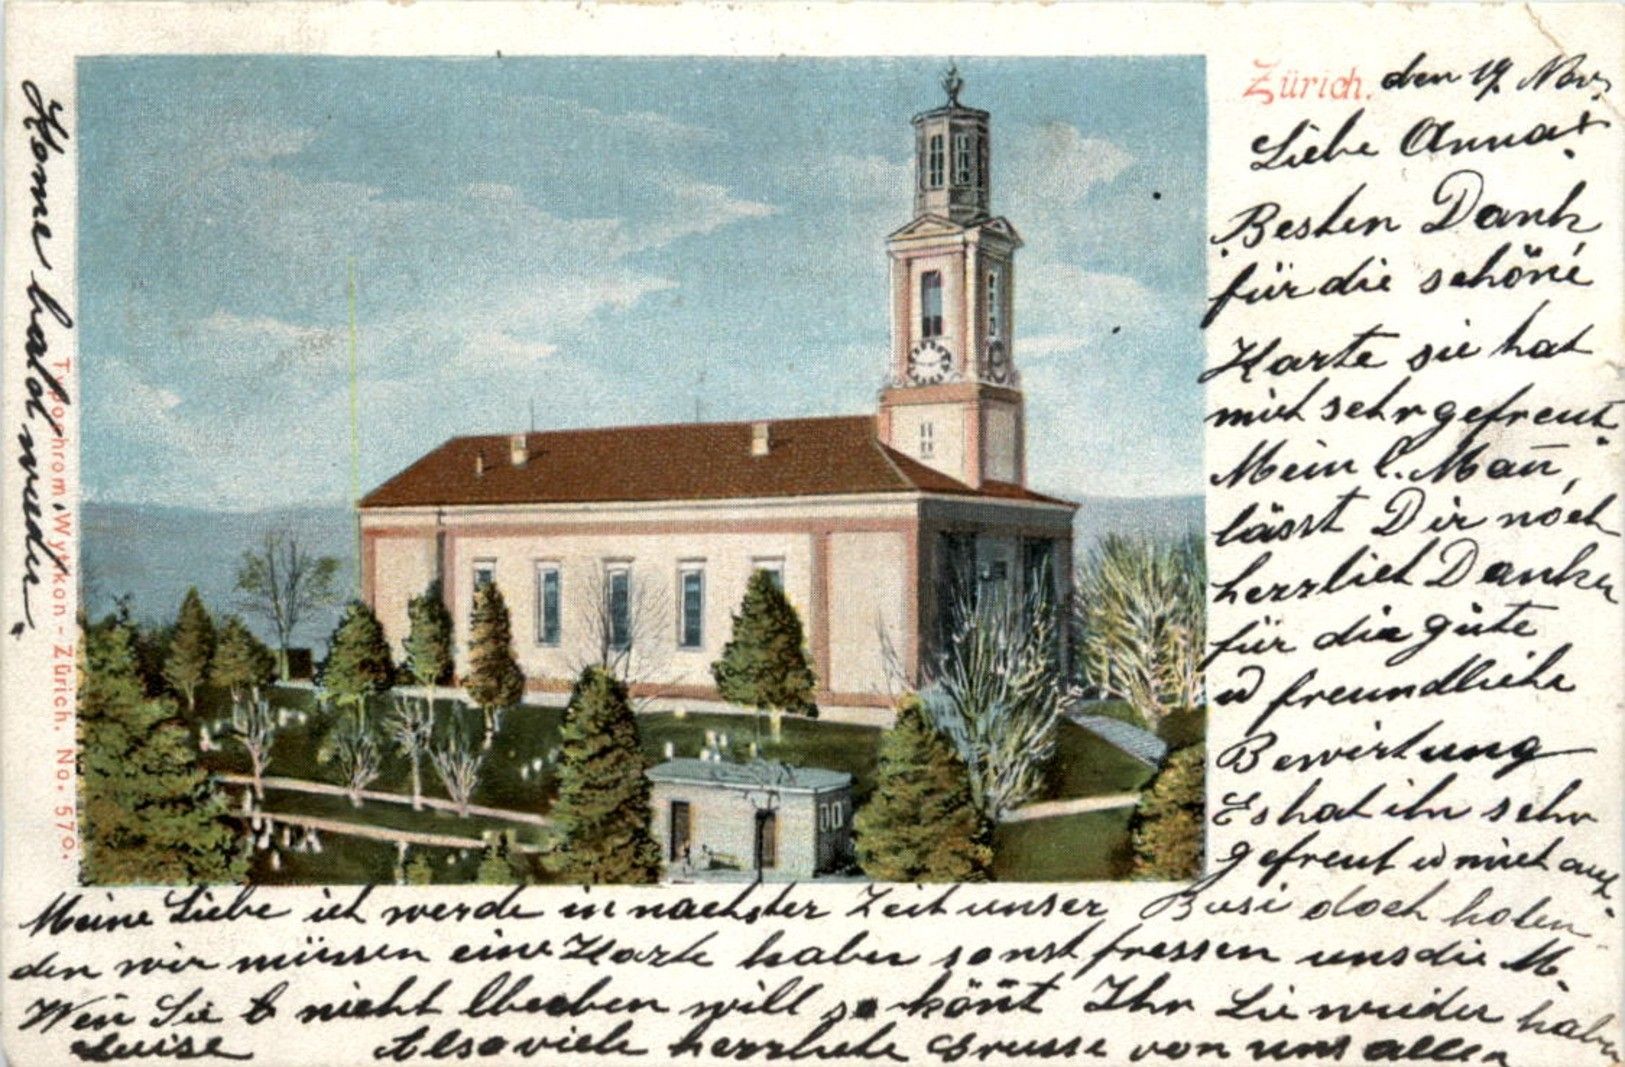 Zürich. den 19. Nov.
Liebe Anna!
Besten Dank
für die schöne
Karte sie hat
mich sehr gefreut.
Mein l. Mañ,
lässt Dir noch
herzlich Danken
für die güte
u freundliche
Bewirtung
Es hat ihn sehr
gefreut u mich auch.
Meine Liebe ich werde in nachster Zeit unser Busi doch holen
den wir müssen eine Karte haben sonst fressen uns die M.
Weñ Sie nicht bleiben will so köñt Ihr Sie wieder haben
Also viele herzliche Grüsse von uns allen
Luise
Kome bald wieder.
Typochrom, Wytikon - Zürich. No. 570.